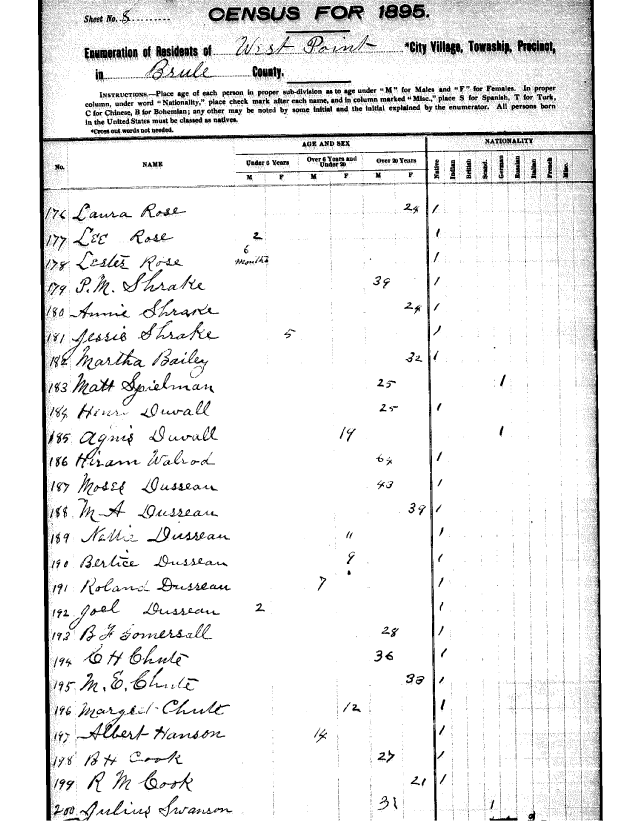 Sheet No. 8
CENSUS FOR 1895.
Enumeration of Residents of West Point *City Village, Township, Precinct,
in Brule County.
INSTRUCTIONS.—Place age of each person in proper sub-division as to age under "M" for Males and "F" for Females. In proper
column, under word "Nationality," place check mark after each name, and in column marked "Misc.," place S for Spanish, T for Turk,
C for Chinese, B for Bohemian; any other may be noted by some initial and the initial explained by the enumerator. All persons born
in the United States must be classed as natives.
*Cross out words not needed.
AGE AND SEX NATIONALITY
No. NAME Under 6 Years Over 6 Years and Under 20 Over 20 Years
M F M F M F Native Indian British Scand. German Russian Italian French Misc.
176 Laura Rose 24 /
177 Lee Rose 2 /
178 Lester Rose 6 months /
179 P.M. Shrake 39 /
180 Annie Shrake 24 /
181 Jessie Shrake 5 /
182 Martha Bailey 32 /
183 Matt Spielman 25 /
184 Henri Duvall 25 /
185 Agnis Duvall 19 /
186 Hiram Walrod 64 /
187 Moses Dusseau 43 /
188 M A Dusseau 39 /
189 Nellie Dusseau 11 /
190 Bertice Dusseau 9 /
191 Roland Dusseau 7 /
192 Joel Dusseau 2 /
193 B F Somersall 28 /
194 C H Chute 36 /
195 M. E. Chute 33 /
196 Marget Chute 12 /
197 Albert Hanson 14 /
198 B H Cook 27 /
199 R M Cook 21 /
200 Julius Swanson 31 /